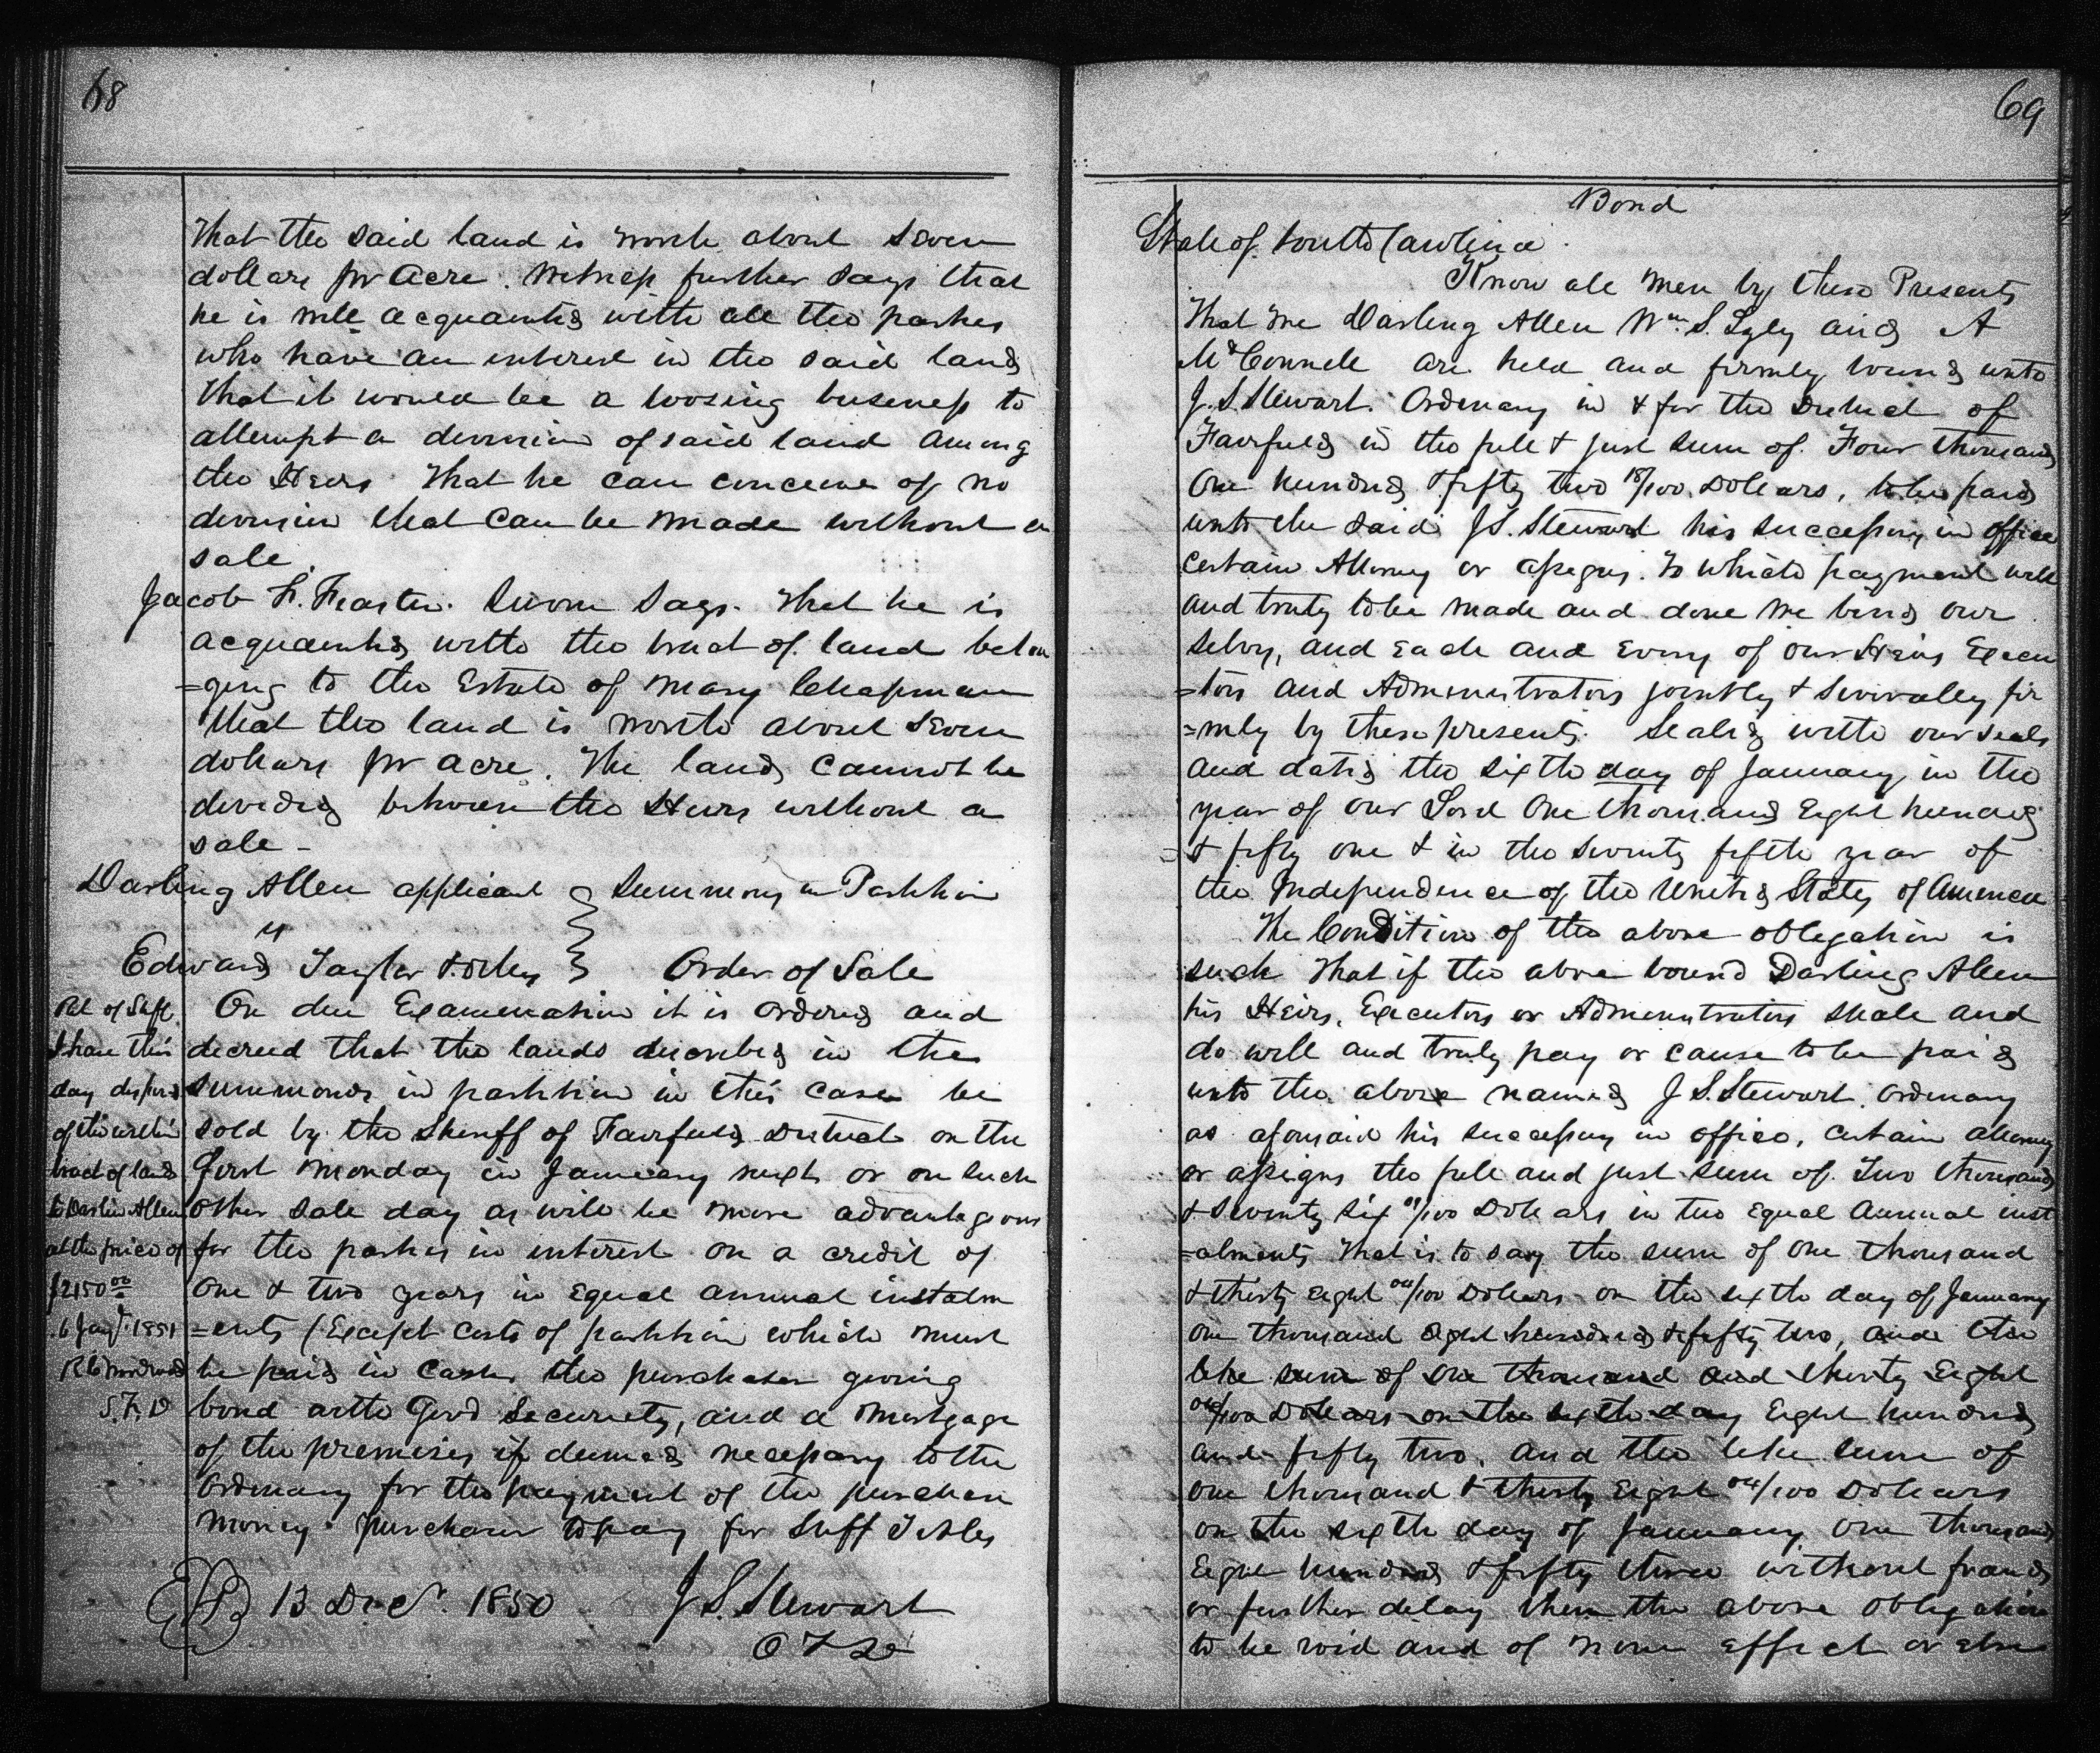 68
That the said land is worth about Seven
dollars pr Acre. Witness further says that
he is well acquainted with all the parties
who have an interest in the said land
that it would be a loosing business to
attempt a division of said land among
the Heirs That he can conceive of no
division that can be made without a
sale.
Jacob F. Feaster. Sworn Says. That he is
acquainted with the tract of land belon
=ging to the Estate of Mary Chapman
that the land is worth about Seven
dollars pr acre. The land cannot be
devided between the Heirs without a
sale -
Darling Allen applicant } Summons in Partition
vs
Edward Taylor & others } Order of Sale
On due Examination it is ordered and
decreed that the lands described in the
summonds in partition in this case be
sold by the Sheriff of Fairfield District on the
first Monday in January next or on such
other sale day as will be more advantageous
for the parties in interest on a credit of
one & two years in Equal annual instalm
=ents (Except Costs of partition which must
be paid in Cash the purchaser giving
bond with Good Security, and a Mortgage
of the premises if deemed necessary to the
Ordinary for the payment of the purchase
Money. Purchaser to pay for Suff Titles
13 Decr. 1850 J S. Stewart
O F D
Ret of Suff.
I have this
day disposed
of the within
tract of land
to Darlin Allen
at the price of
$2150 00
6 Jany. 1851
R E Woodward
S. F. D
69
Bond
State of South Carolina.
Know all men by these Presents
That We Darling Allen Wm. S. Lyly and A
McConnell are held and firmly bound unto
J. S. Stewart. Ordinary in & for the District of
Fairfield in the full & just sum of Four thousand
One hundred & fifty two 18/100 Dollars, to be paid
unto the said J S. Stewart his successors in office
Certain Attorney or assigns. To which payment well
and truly to be made and done we bind our
selves, and Each and Every of our Heirs Execu
=tors and Administrators jointly & severally fir
=mly by these presents. Sealed with our seals
and dated the sixth day of January in the
year of our Lord One thousand Eight hundred
& fifty one & in the seventy fifth year of
the Independence of the United States of America
The Condition of the above obligation is
such That if the above bound Darling Allen
his Heirs, Executors or Administrators shall and
do well and truly pay or cause to be paid
unto the above named J S. Stewart. Ordinary
as aforsaid his successors in office, certain attorney
or assigns the full and just sum of Two thousand
& Seventy Six 09/100 Dollars in two Equal Annual inst
=alments, that is to say the sum of One thousand
& thirty Eight 04/100 Dollars on the sixth day of January
one thousand Eight hundred & fifty two, and the
like sum of One thousand and thirty Eight
04/100 Dollars on the sixth day Eight hundred
and fifty two, and the like sum of
one thousand & thirty Eight 04/100 Dollars
on the sixth day of January one thousand
Eight hundred & fifty three without fraud
or further delay then the above obligation
to be void and of none Effect or Else